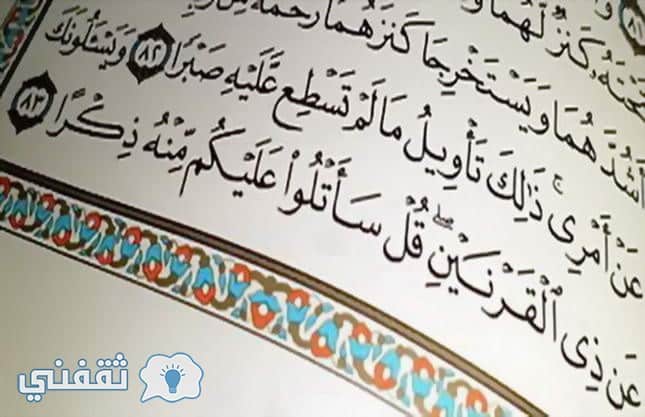 ٨١
تَحْتَهُۥ كَنزٌ لَّهُمَا
أَشُدَّهُمَا وَيَسْتَخْرِجَا كَنزَهُمَا رَحْمَةً مِّن
عَنْ أَمْرِى ۚ ذَٰلِكَ تَأْوِيلُ مَا لَمْ تَسْطِع عَّلَيْهِ صَبْرًا ٨٢ وَيَسْـَٔلُونَكَ
عَن ذِى ٱلْقَرْنَيْنِ ۖ قُلْ سَأَتْلُوا۟ عَلَيْكُم مِّنْهُ ذِكْرًا ٨٣
ثقفني